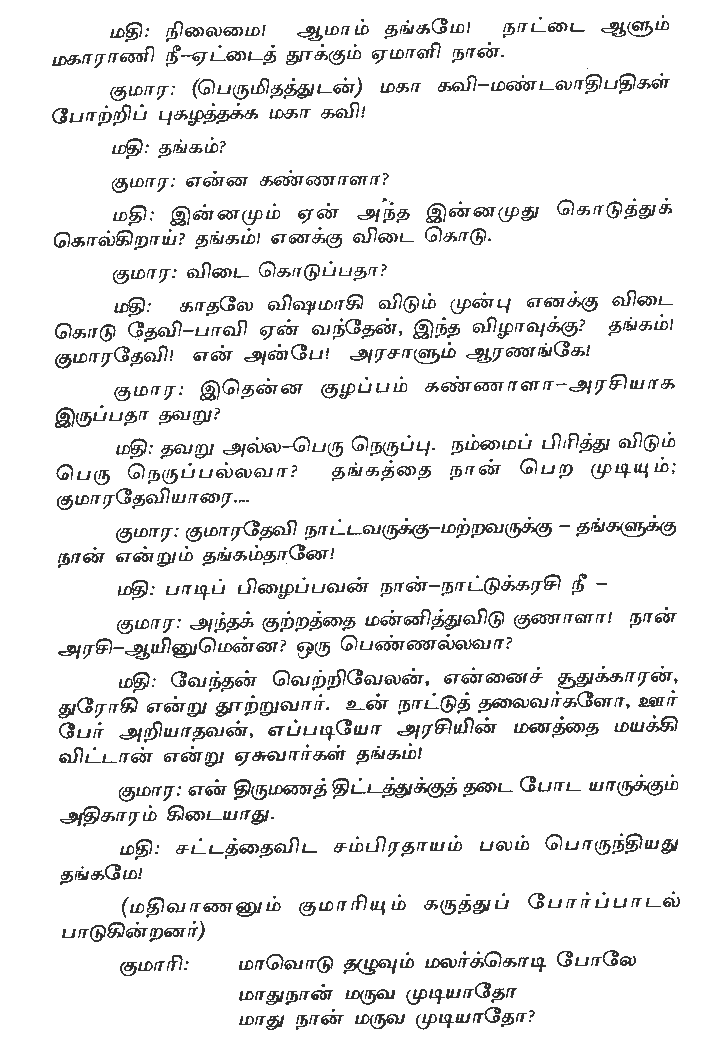 மதி: நிலைமை! ஆமாம் தங்கமே! நாட்டை ஆளும்
மகாராணி நீ-ஏட்டைத் தூக்கும் ஏமாளி நான்.
குமார: (பெருமிதத்துடன்) மகா கவி-மண்டலாதிபதிகள்
போற்றிப் புகழத்தக்க மகா கவி!
மதி: தங்கம்?
குமார: என்ன கண்ணாளா?
மதி: இன்னமும் ஏன் அந்த இன்னமுது கொடுத்துக்
கொல்கிறாய்? தங்கம்! எனக்கு விடை கொடு.
குமார: விடை கொடுப்பதா?
மதி: காதலே விஷமாகி விடும் முன்பு எனக்கு விடை
கொடு தேவி-பாவி ஏன் வந்தேன், இந்த விழாவுக்கு? தங்கம்!
குமாரதேவி! என் அன்பே! அரசாளும் ஆரணங்கே!
குமார: இதென்ன குழப்பம் கண்ணாளா-அரசியாக
இருப்பதா தவறு?
மதி: தவறு அல்ல-பெரு நெருப்பு. நம்மைப் பிரித்து விடும்
பெரு நெருப்பல்லவா? தங்கத்தை நான் பெற முடியும்;
குமாரதேவியாரை....
குமார: குமாரதேவி நாட்டவருக்கு-மற்றவருக்கு - தங்களுக்கு
நான் என்றும் தங்கம்தானே!
மதி: பாடிப் பிழைப்பவன் நான்-நாட்டுக்கரசி நீ -
குமார: அந்தக் குற்றத்தை மன்னித்துவிடு குணாளா! நான்
அரசி-ஆயினுமென்ன? ஒரு பெண்ணல்லவா?
மதி: வேந்தன் வெற்றிவேலன், என்னைச் சூதுக்காரன்,
துரோகி என்று தூற்றுவார். உன் நாட்டுத் தலைவர்களோ, ஊர்
பேர் அறியாதவன், எப்படியோ அரசியின் மனத்தை மயக்கி
விட்டான் என்று ஏசுவார்கள் தங்கம்!
குமார: என் திருமணத் திட்டத்துக்குத் தடை போட யாருக்கும்
அதிகாரம் கிடையாது.
மதி: சட்டத்தைவிட சம்பிரதாயம் பலம் பொருந்தியது
தங்கமே!
(மதிவாணனும் குமாரியும் கருத்துப் போர்ப்பாடல்
பாடுகின்றனர்)
குமாரி: மாவொடு தழுவும் மலர்க்கொடி போலே
மாதுநான் மருவ முடியாதோ
மாது நான் மருவ முடியாதோ?